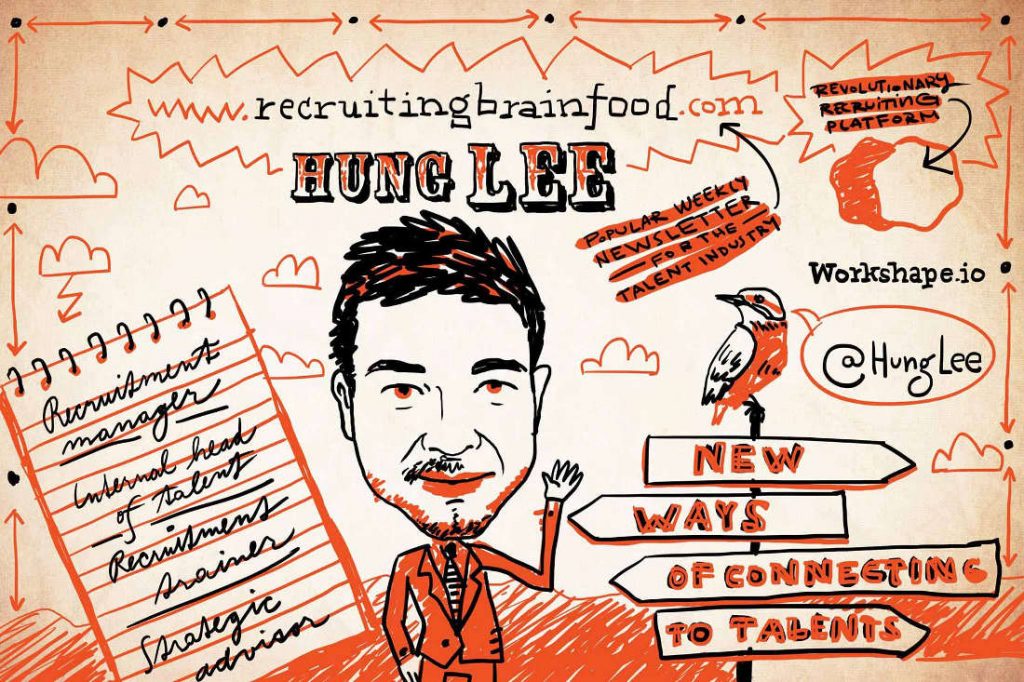 www.recruitingbrainfood.com
HUNG LEE
REVOLUTIONARY
RECRUITING
PLATFORM
POPULAR WEEKLY
NEWSLETTER
FOR THE
TALENT INDUSTRY
Workshape.io
@HungLee
Recruitment
manager
Internal head
of talent
Recruitment
trainer
Strategic
advisor
NEW
WAYS
OF CONNECTING
TO TALENTS